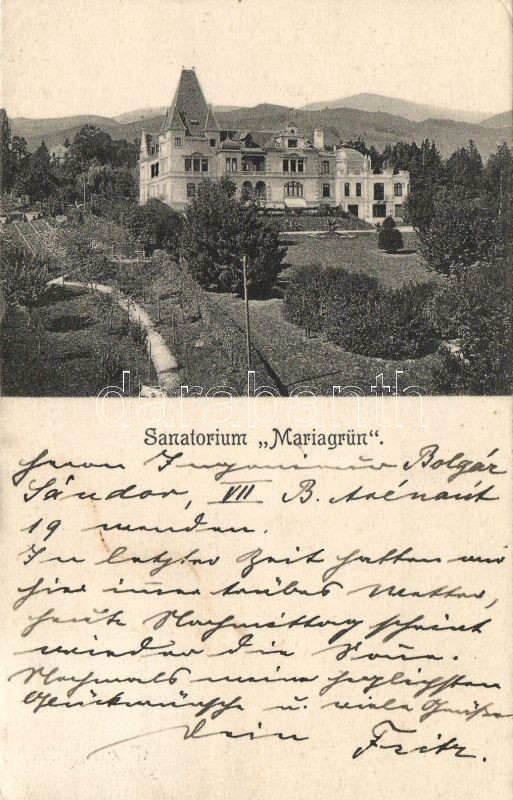 darabanth.com
Sanatorium „Mariagrün“.
Herrn Ingenieur Bolgár
Sándor, VII B. Arénaút
19 wenden.
In letzter Zeit hatten wir
hier immer trübes Wetter,
heute Nachmittag scheint
wieder die Sonne.
Nochmals meine herzlichsten
Glückwünsche u. viele Grüße
Dein Fritz.